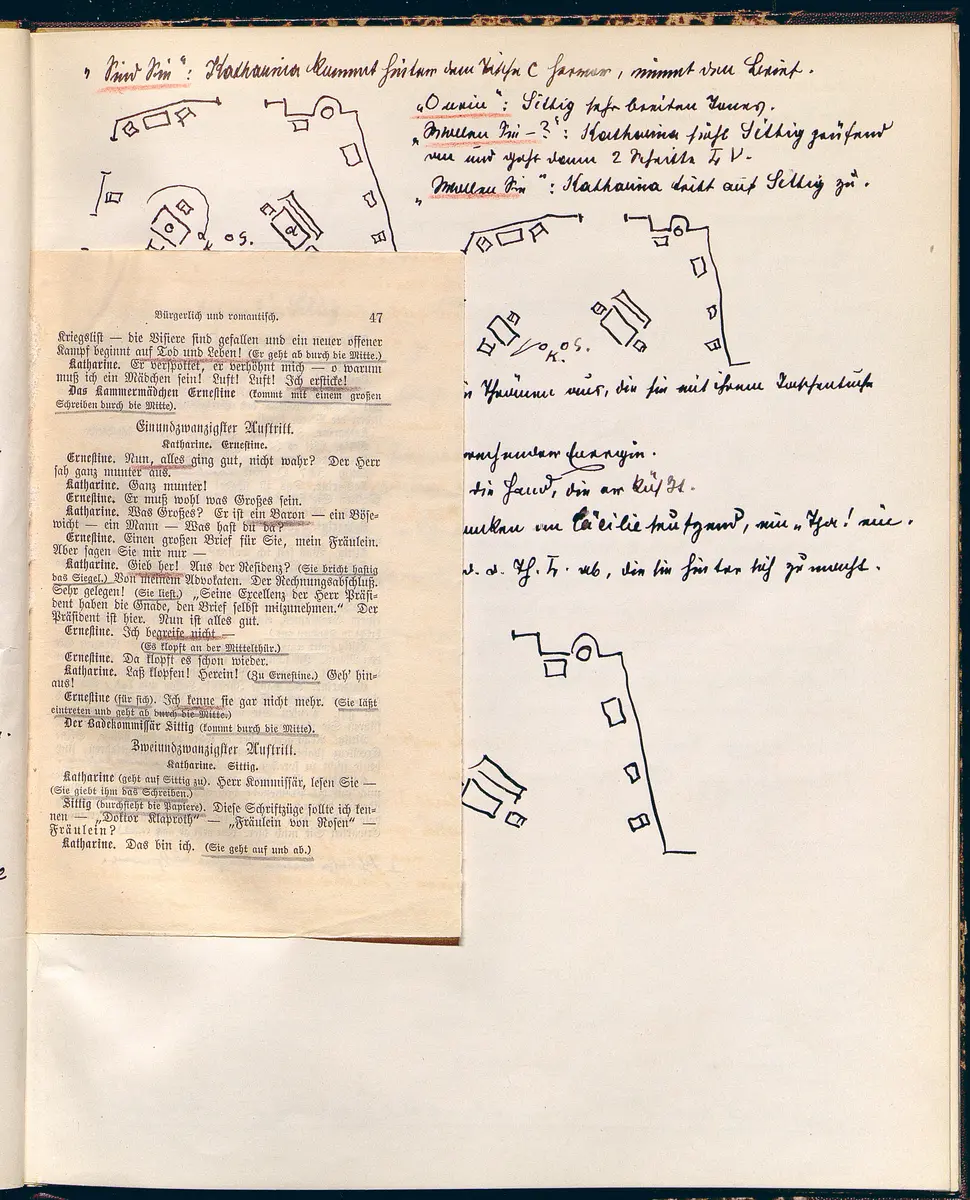 „Sind Sie“: Katharina kommt hinter dem Tische C hervor, nimmt den Brief.
„O nein“: Sittig sehr breiten Tones.
„Wollen Sie – ?“: Katharina sieht Sittig prüfend
an und geht dann 2 Schritte
„Wollen Sie“: Katharina tritt auf Sittig zu.
C
d
o S.
o o S.
K.
Thränen aus, die sie mit ihrem Taschentuche
Energie.
die Hand, die er küßt.
an Cäcilie seufzend, ein „Tha! ein.
d. d. Th. ab, die sie hinter sich zu macht.
Bürgerlich und romantisch. 47
Kriegslist — die Visiere sind gefallen und ein neuer offener
Kampf beginnt auf Tod und Leben! (Er geht ab durch die Mitte.)
Katharine. Er verspottet, er verhöhnt mich — o warum
muß ich ein Mädchen sein! Luft! Luft! Ich ersticke!
Das Kammermädchen Ernestine (kommt mit einem großen
Schreiben durch die Mitte).
Einundzwanzigster Auftritt.
Katharine. Ernestine.
Ernestine. Nun, alles ging gut, nicht wahr? Der Herr
sah ganz munter aus.
Katharine. Ganz munter!
Ernestine. Er muß wohl was Großes sein.
Katharine. Was Großes? Er ist ein Baron — ein Böse-
wicht — ein Mann — Was hast du da?
Ernestine. Einen großen Brief für Sie, mein Fräulein.
Aber sagen Sie mir nur —
Katharine. Gieb her! Aus der Residenz? (Sie bricht hastig
das Siegel.) Von meinem Advokaten. Der Rechnungsabschluß.
Sehr gelegen! (Sie liest.) „Seine Excellenz der Herr Präsi-
dent haben die Gnade, den Brief selbst mitzunehmen.“ Der
Präsident ist hier. Nun ist alles gut.
Ernestine. Ich begreife nicht —
(Es klopft an der Mittelthür.)
Ernestine. Da klopft es schon wieder.
Katharine. Laß klopfen! Herein! (Zu Ernestine.) Geh' hin-
aus!
Ernestine (für sich). Ich kenne sie gar nicht mehr. (Sie läßt
eintreten und geht ab durch die Mitte.)
Der Badekommissär Sittig (kommt durch die Mitte).
Zweiundzwanzigster Auftritt.
Katharine. Sittig.
Katharine (geht auf Sittig zu). Herr Kommissär, lesen Sie —
(Sie giebt ihm das Schreiben.)
Sittig (durchsieht die Papiere). Diese Schriftzüge sollte ich ken-
nen — „Doktor Klaproth“ — „Fräulein von Rosen“ —
Fräulein?
Katharine. Das bin ich. (Sie geht auf und ab.)